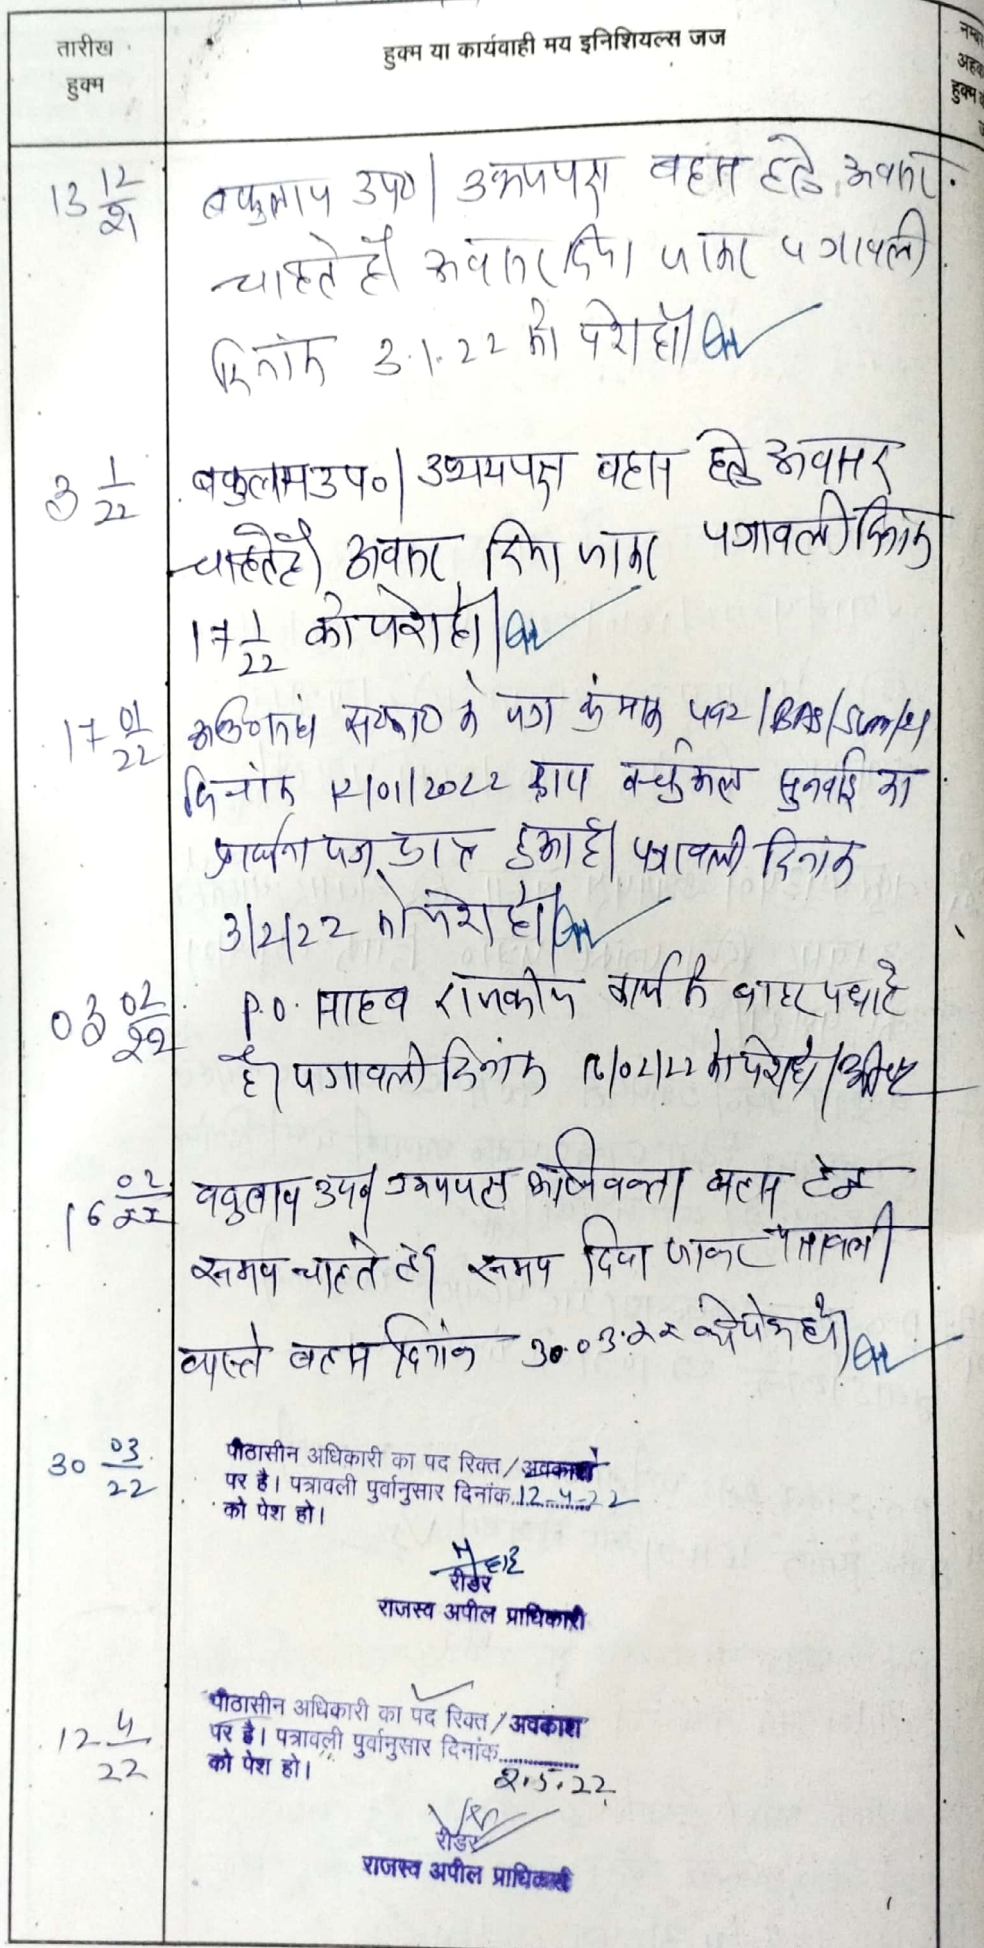 तारीख
हुक्म
हुक्म या कार्यवाही मय इनिशियल्स जज
हुक्म
13 12/21
वकुलाय उप0। उभयपक्ष बहस हेतु अवसर
चाहते है। अवसर दिया जाकर पत्रावली
दिनांक 3.1.22 को पेश हो।
3 1/22
वकुलाय उप०। उभयपक्ष बहस हेतु अवसर
चाहते है। अवसर दिया जाकर पत्रावली दिनांक
17 1/22 को पेश हो।
17 01/22
के पत्र क्रंमाक
दिनांक 12/01/2022 द्वारा वर्चुअल सुनवाई का
प्रार्थना पत्र प्राप्त हुआ है। पत्रावली दिनांक
3/2/22 को पेश हो।
03 02/22
P.O. साहब राजकीय कार्य से बाहर पधारे
है। पत्रावली दिनांक 16/02/22 को पेश हो।
16 02/22
वकुलाय उप0 उभयपक्ष अधिवक्ता बहस हेतु
समय चाहते है। समय दिया जाकर पत्रावली
वास्ते बहस दिनांक 30.03.22 को पेश हो।
30 03/22
पीठासीन अधिकारी का पद रिक्त/अवकाश
पर है। पत्रावली पुर्वानुसार दिनांक 12-4-22
को पेश हो।
रीडर
राजस्व अपील प्राधिकारी
12 4/22
पीठासीन अधिकारी का पद रिक्त/अवकाश
पर है। पत्रावली पुर्वानुसार दिनांक............
को पेश हो।
2.5.22
रीडर
राजस्व अपील प्राधिकारी